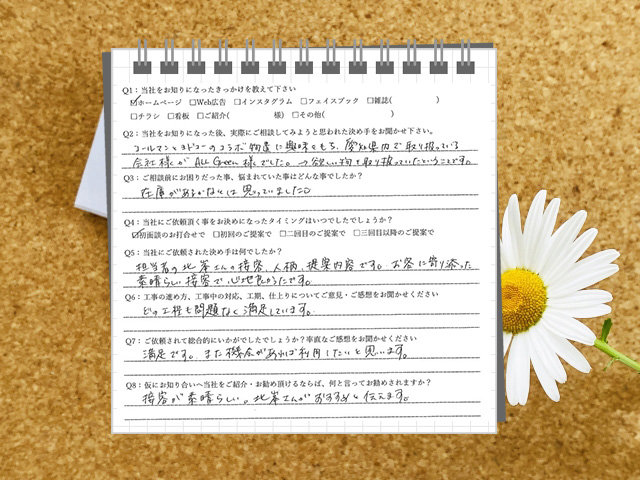 Q1：当社をお知りになったきっかけを教えて下さい
☑ホームページ □Web広告 □インスタグラム □フェイスブック □雑誌( )
□チラシ □看板 □ご紹介( 様) □その他( )
Q2：当社をお知りになった後、実際にご相談してみようと思われた決め手をお聞かせ下さい。
コールマンとヨドコーのコラボ物置に興味をもち、愛知県内で取り扱っている
会社様が ALL Green様でした。→欲しい物を取り扱っていたということです。
Q3：ご相談前にお困りだった事、悩まれていた事はどんな事でしたか？
在庫があるかないかは思っていました
Q4：当社にご依頼頂く事をお決めになったタイミングはいつでしたでしょうか？
☑初面談のお打合せで □初回のご提案で □二回目のご提案で □三回目以降のご提案で
Q5：当社にご依頼された決め手は何でしたか？
担当者の北峯さんの接客、人柄、提案内容です。お客に寄り添った
素晴らしい接客で心地良かったです。
Q6：工事の進め方、工事中の対応、工期、仕上りについてご意見・ご感想をお聞かせください
どの工程も問題なく満足しています。
Q7：ご依頼されて総合的にいかがでしたでしょうか？率直なご感想をお聞かせください
満足です。また機会があれば利用したいと思います。
Q8：仮にお知り合いへ当社をご紹介・お勧め頂けるならば、何と言ってお勧めされますか？
接客が素晴らしい。北峯さんがおすすめと伝えます。